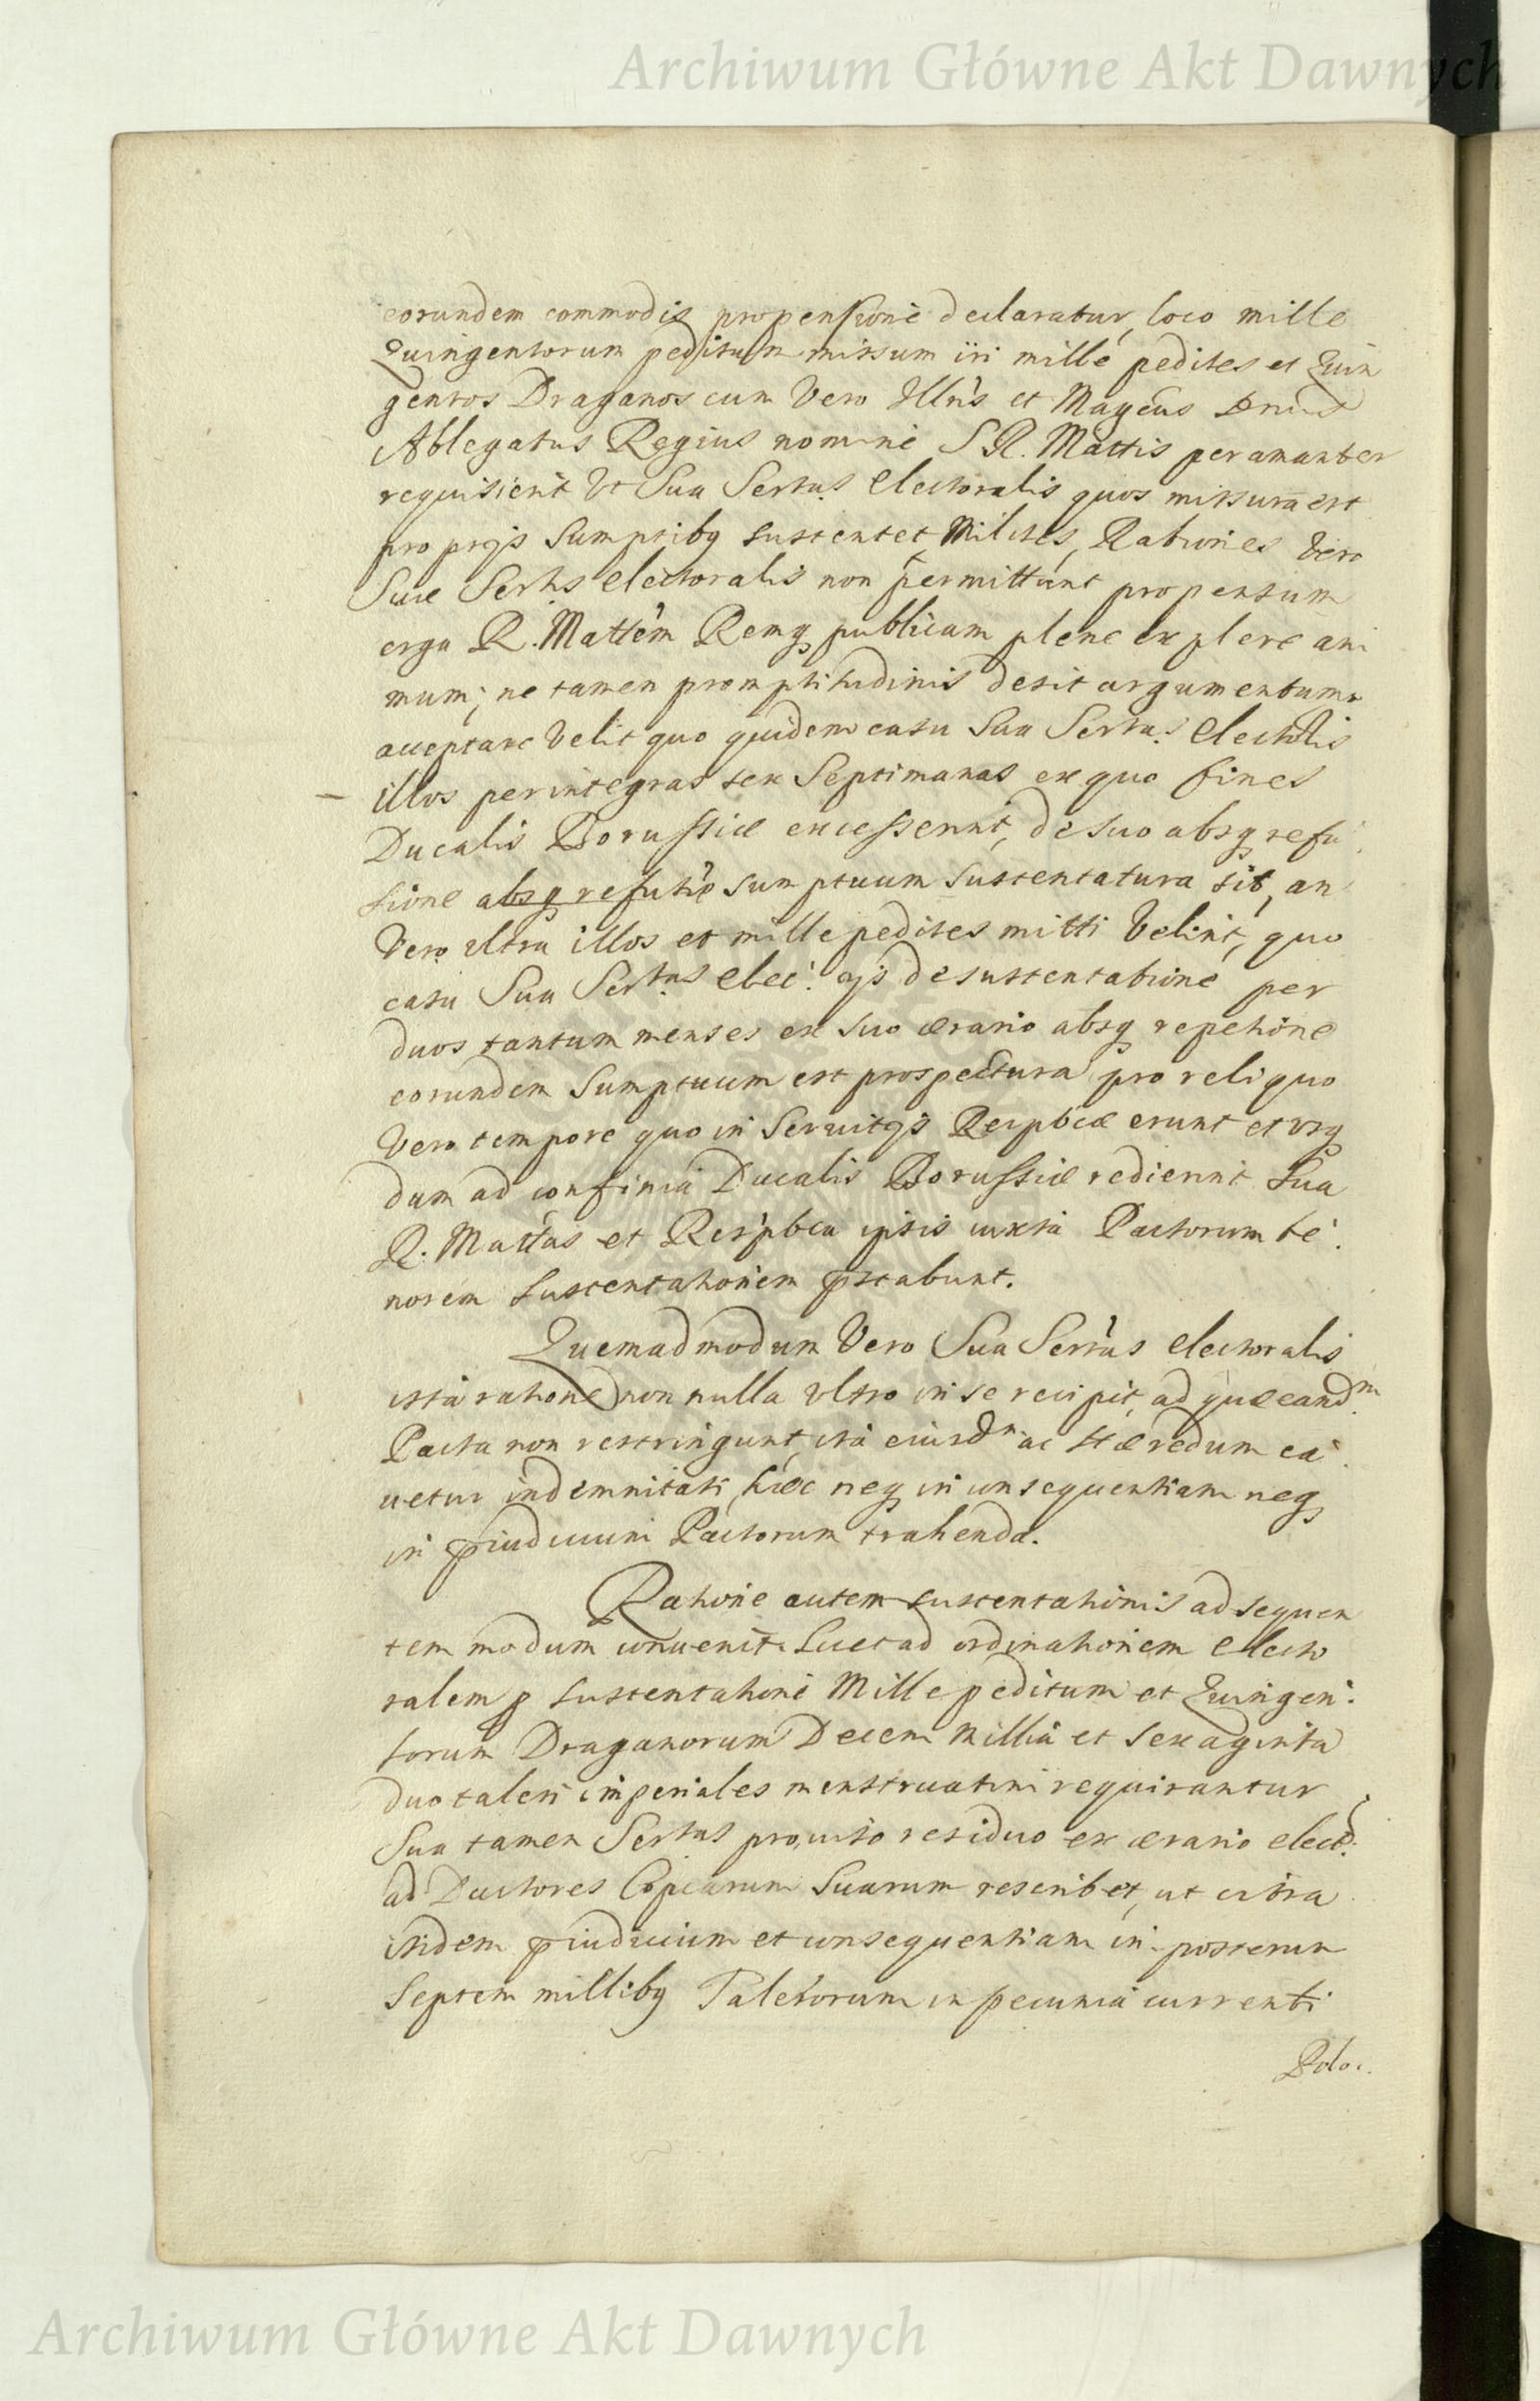 Archiwum Główne Akt Dawnych
eorundem commodis propensione declaratur, loco mille
Quingentorum peditum missum iri mille pedites et Quin
gentos Draganos cum Vero Illris et Magcus Dnus
Ablegatus Regius nomine S R. Mattis peramanter
requisierit Vt Sua Sertas Electoralis quos missura est
proprijs Sumptibq sustentet Milites, Rationes Vero
Suæ Sertis Electoralis non permittunt propensum
erga R. Mattem Remq publicam plene explere ani
mum; ne tamen promptitudinis desit argumentum
acceptare Velit quo quidem casu Sua Sertas Electolis
– illos per integras sex Septimanas ex quo fines
Ducalis Borussiæ excesserint, de suo absq refu
sione absq refusie sumptuum sustentatura sit, an
Vero ultra illos et mille pedites mitti Velint, quo
casu Sua Sertas elec: ijs de sustentatione per
duos tantum menses ex suo ærario absq repetione
eorundem Sumptuum est prospectura pro reliquo
Vero tempore quo in Seruitijs Reipbcæ erunt et vsq
dum ad confinia Ducalis Borussiæ redierint Sua
R. Mattas et Respbca ipsis iuxta Pactorum te
norem sustentationem pstabunt.
Quemadmodum Vero Sua Sertas Electoralis
ista ratione non nulla vltro in se recipit, ad quæ eandm
Pacta non restringunt, ita eiusdm ac Hæredum ca
uetur indemnitati, hæc neq in consequentiam neq
in piudicium Pactorum trahenda.
Ratione autem sustentationis ad sequen
tem modum conuenit. Licet ad ordinationem Electo
ralem p sustentatione Mille peditum et Quingen
torum Draganorum Decem Millia et sexaginta
duo taleri imperiales menstruatim requirantur,
Sua tamen Sertas prouiso residuo ex ærario elect:
ad Ductores Copiarum Suarum rescribet, ut citra
itidem piudicium et consequentiam in posterum
Septem millibq Talerorum in pecunia currenti
Polo.
Archiwum Główne Akt Dawnych